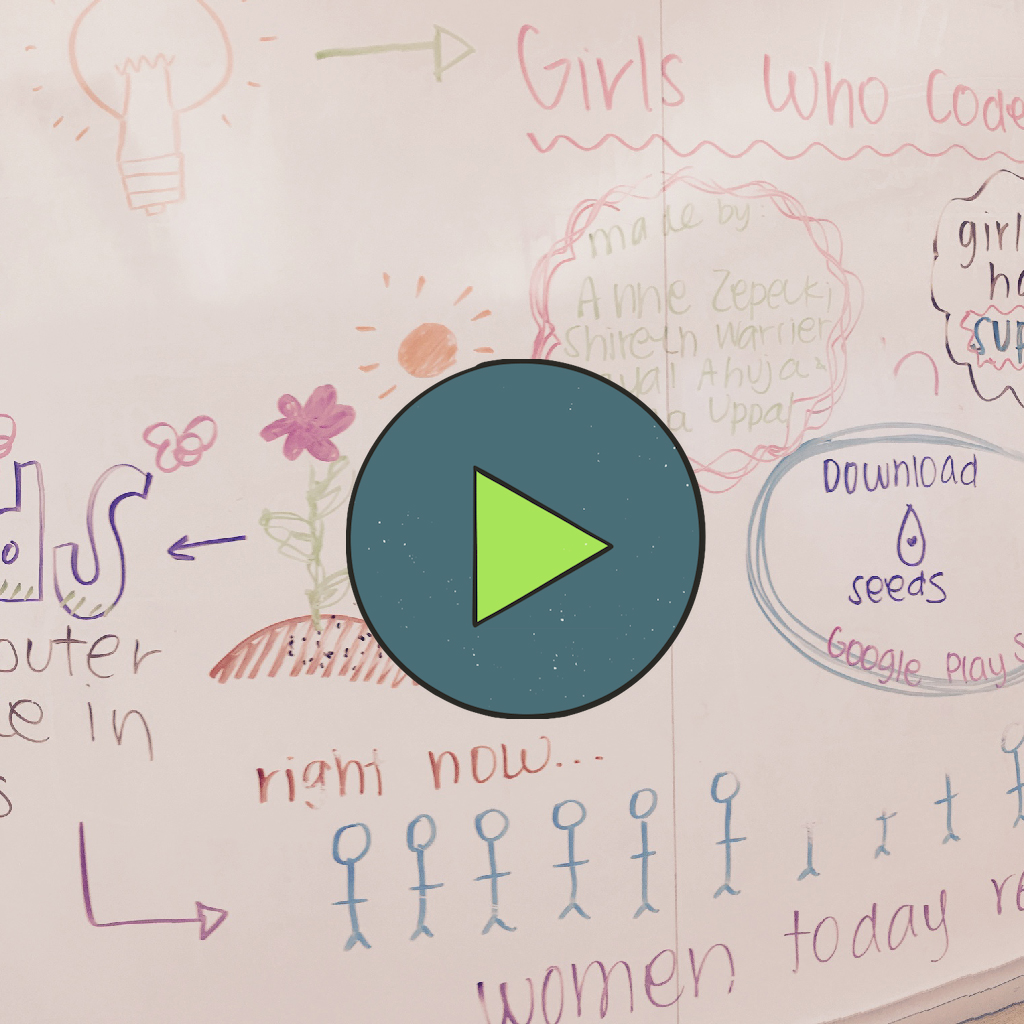 Girls Who Code
made by:
Anne Zepecki
Shireen Warrier
Ahuja
Uppal
girl
ha
SUP
DOWNLOAD
seeds
Google Play S
ds
outer
in
s
right now...
women today re